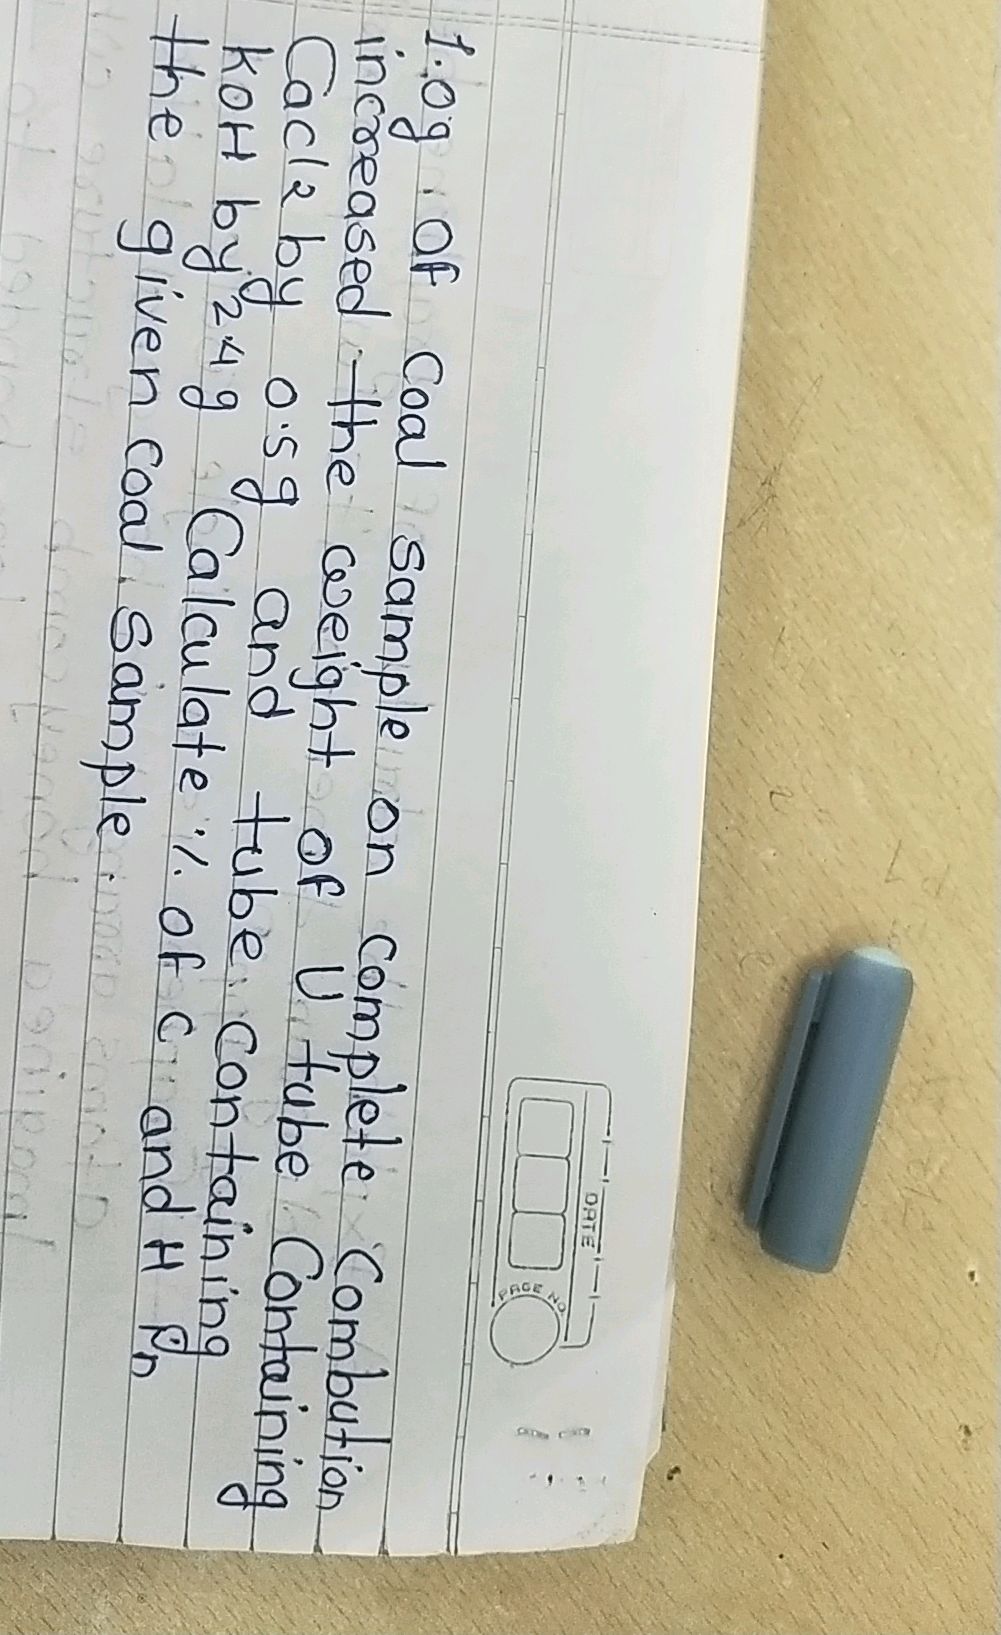 DATE
PAGE NO.
1.0g of coal sample on complete combution
increased the weight of U tube containing
Cacl2 by 0.5g and tube containing
KOH by 2.4g Calculate % of C and H in
the given coal sample